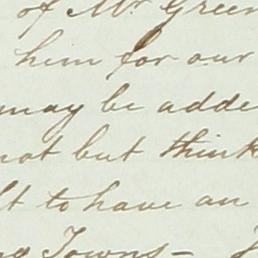 of Mr Green
him for our
may be adde
not but think
lt to have an
ng Towns —